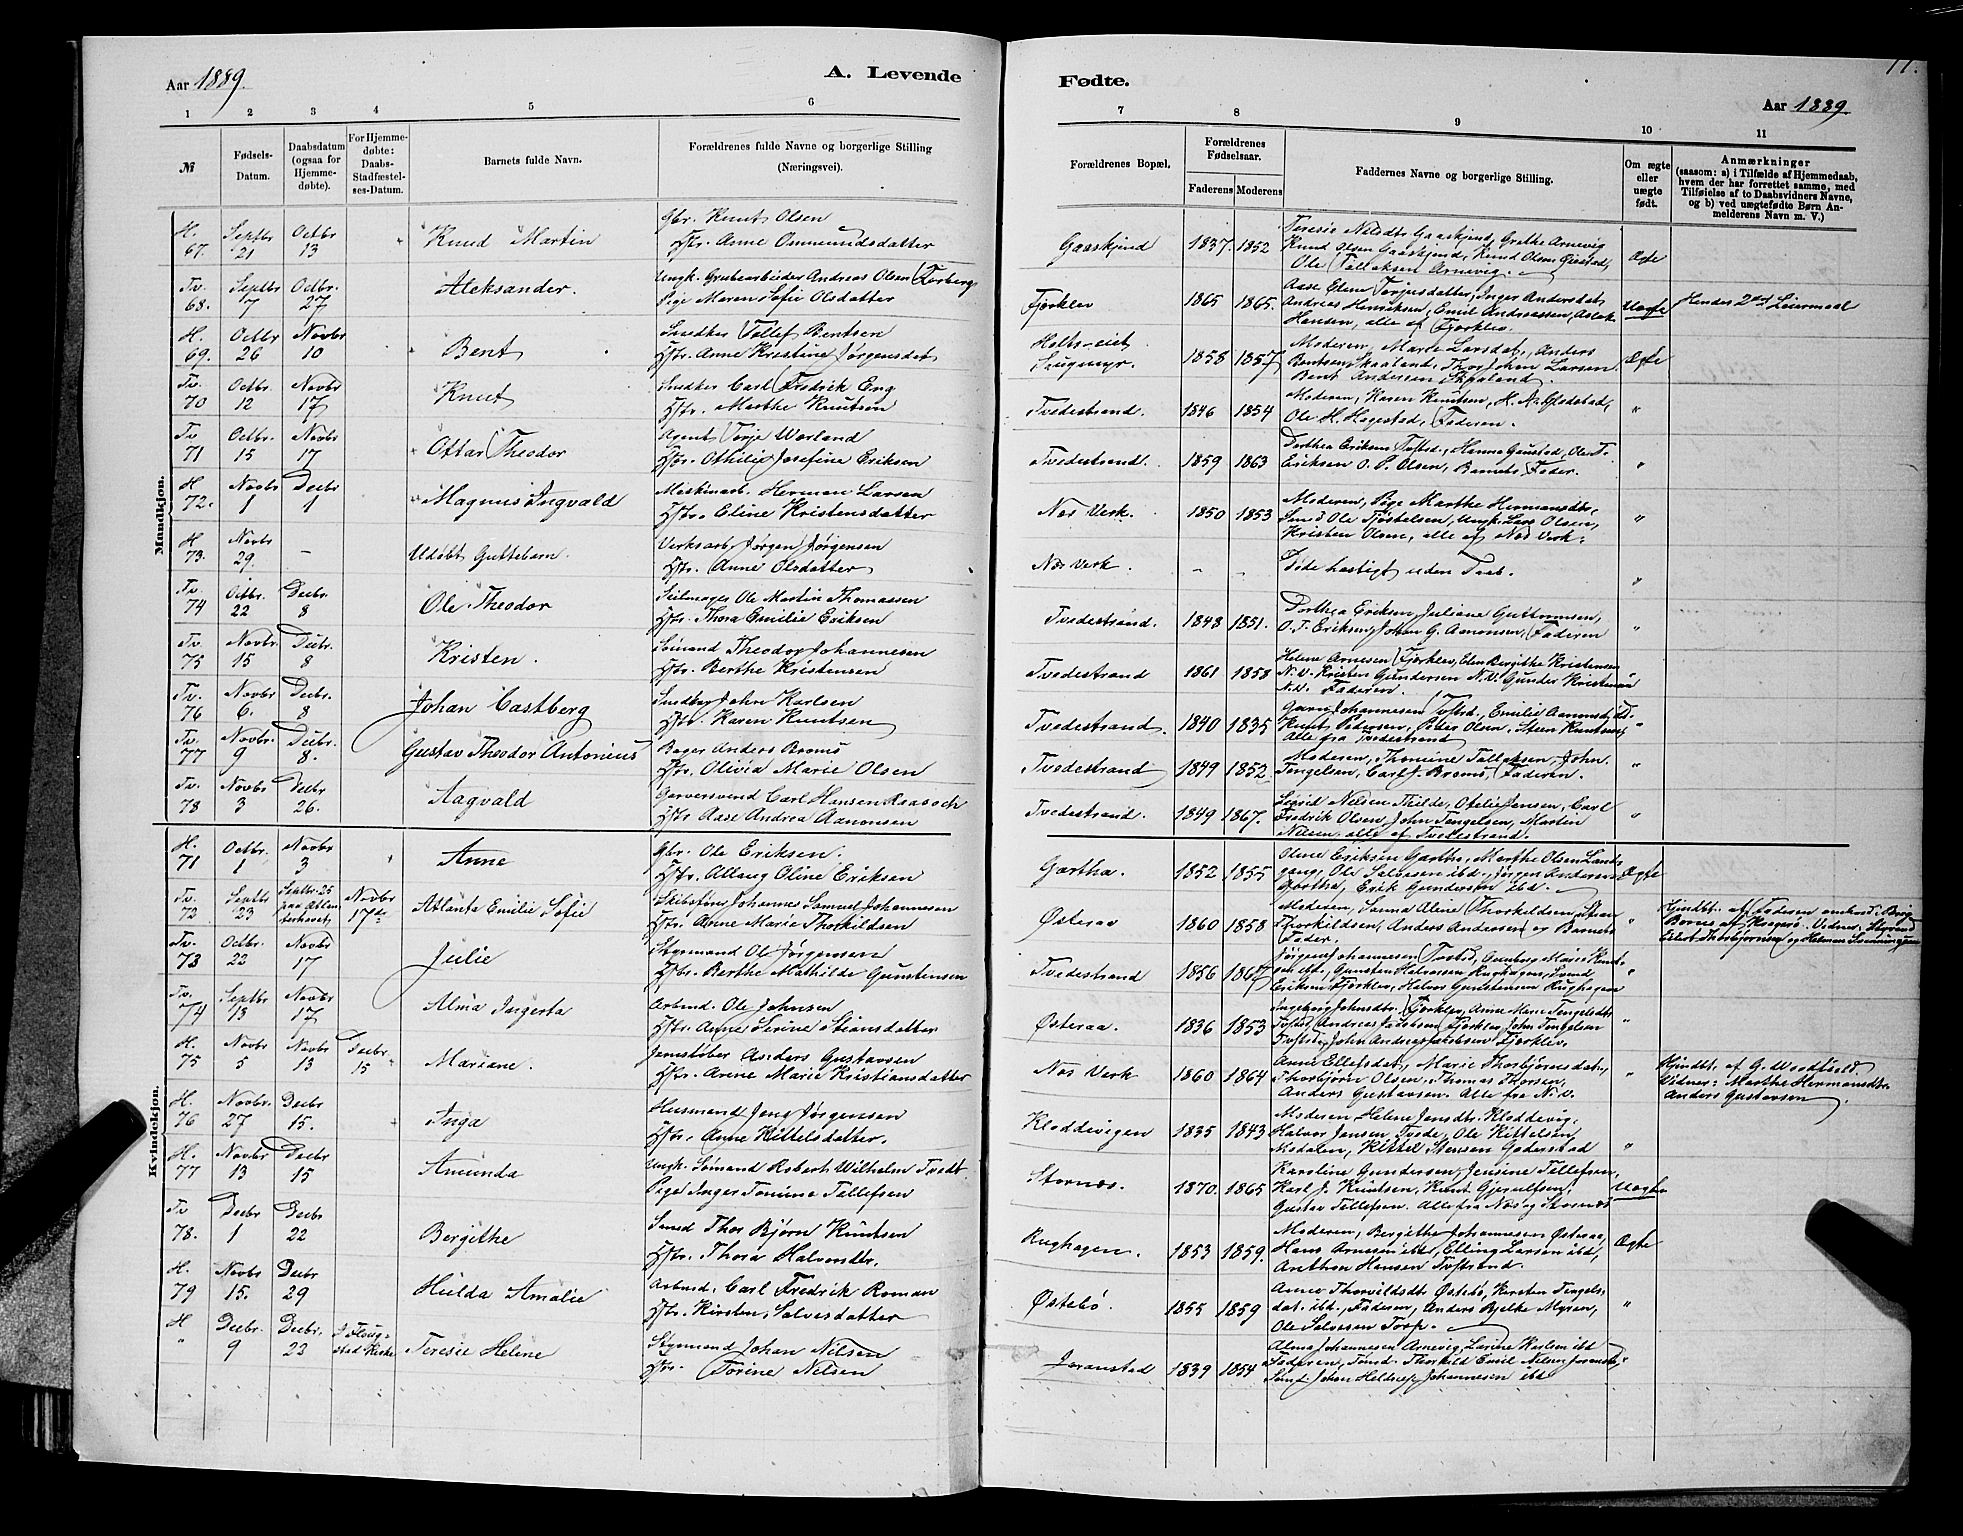 Aar 1889.
A. Levende
Fødte.
Aar 1889.
1 2 3 4 5 6 7 8 9 10 11
№
Fødsels-
Datum.
Daabsdatum
(ogsaa for
Hjemme-
døbte).
For Hjemme-
døbte:
Daabs-
Stadfæstel-
ses-Datum.
Barnets fulde Navn.
Forældrenes fulde Navne og borgerlige Stilling
(Næringsvei).
Forældrenes Bopæl.
Forældrenes
Fødselsaar.
Faderens Moderens
Faddernes Navne og borgerlige Stilling.
Om ægte
eller
uægte
født.
Anmærkninger
(saasom: a) i Tilfælde af Hjemmedaab,
hvem der har forrettet samme, med
Tilføielse af to Daabsvidners Navne,
og b) ved uægtefødte Børn An-
melderens Navn m. V.)
Mandkjøn.
H. 67. Septbr 21 Octbr 13 Knud Martin
Gbr. Knut Olsen
Hstr. Anne Ommundsdatter
Gaaskjend 1837. 1852
Teresie Nilsdtr Gaaskjend, Grethe Arnevig
Knud Olsen Gaaskjend, Knud Olsen
Ole Tellefsen Arnevig.
Ægte
Tv. 68. Septbr 7 Octbr. 27 Aleksander.
Ungk. Grubearbeider Andreas Olsen
Pige Maren Sofie Olsdatter
Fjerklev 1865 1865.
Aase Oline Terjesdatter, Inger Andersdat,
Andreas Henriksen, Emil Andreassen, Aslak
Hansen, alle af Fjerklev.
Uægte
Hendes 2det Leiermaal
H. 69. Octbr 26 Novbr 10 Bent
Snedker Tellef Bentsen
Hstr. Anne Kristine Jørgensdat
Holts-eiet
1858 1857
Moderen, Marie Larsdat., Anders
Bentsen Skaaland, Thor John Larsen
Bent Andersen Skaaland.
Ægte
Tv. 70 Octbr. 12 Novbr 17 Knut
Snedker Carl Fredrik Eng
Hstr. Marthe Knutsen
Tvedestrand. 1846 1854
Moderen, Karen Knutsen, H. A. Gjedestad,
Ole H. Hagestad, Faderen.
"
Tv 71 Octbr. 15 Novbr 17 Ottar Theodor
Agent Terje Værland
Hstr. Othilie Josefine Eriksen
Tvedestrand. 1859 1863
Dorthea Eriksen Tvedestd., Hanna Gaustad, Ole T.
Eriksen O. P. Olsen, Barnets Fader.
"
H 72. Novbr 1 Decbr 1 Magnus Ingvald
Maskinarb. Herman Larsen
Hstr. Eline Kristensdatter
Nes Verk. 1850 1853
Moderen, Pige Marthe Hermansdtr,
Smed Ole Tjøstelsen, Ungk. Lars Olsen,
Kristen Olsen, alle af Nes Verk.
"
H 73. Novbr 29. – Udøbt Guttebarn.
Verksarb. Jørgen Jørgensen
Hstr. Anne Olsdatter
Nes Verk. - -
Døde hastigt uden Daab.
"
Tv. 74 Octbr. 22 Decbr. 8 Ole Theodor
Seilmager Ole Martin Thomassen
Hstr. Thora Emilie Eriksen
Tvedestrand. 1848 1851.
Dorthea Eriksen, Juliane Guttormsen,
O. T. Eriksen, Johan G. Aanonsen, Faderen
"
Tv. 75 Novbr. 15 Decbr. 8 Kristen.
Sømand Theodor Johannesen
Hstr. Berthe Kristensen
Tvedestrand 1861 1858
Helene Arnesen Fjerklev, Elen Bergithe Kristensen
N.V. Kristen Gundersen N.V. Gunder Kristensen
N.V. Faderen.
"
Tv. 76 Novbr 6. Decbr. 8 Johan Castberg
Snedker John Karlsen
Hstr. Karen Knutsen
Tvedestrand 1840 1835
Johannesen, Emilie
Knut Pedersen, Peder Olsen, Steen Knutsen,
Alle fra Tvedestrand
"
Tv. 77 Novbr. 9 Decbr. 8. Gustav Theodor Antonius
Bager Anders Broms
Hstr. Olivia Marie Olsen
Tvedestrand 1849 1852.
Moderen, Thomine Tallaksen, John
Tengelsen, Carl J. Broms, Faderen.
"
Tv. 78 Novbr 3 Decbr 26. Aagvald
Garversvend Carl Hansen Raasoch
Hstr. Aase Andrea Aanonsen
Tvedestrand. 1849 1867.
Sigrid Nilsen Thilde, Otelie Jensen, Carl
Fredrik Olsen, John Tengelsen, Martin
Nilsen, alle af Tvedestrand.
"
Kvindekjøn.
H. 71 Octbr. 1 Novbr 3 Anne
Gbr. Ole Eriksen.
Hstr. Allaug Oline Eriksen
Gartha. 1852 1855
Oline Eriksen Gartha, Marthe Olsen Land-
gang, Ole Salvesen ibd., Jørgen Andersen
Gartha, Erik Gundersen ibd.
Ægte
Tv. 72 Septbr 23 Septbr. 25 paa Atlan-
terhavet Novbr 17de Atlanta Emilie Sofie
Skibsfører Johannes Samuel Johannesen
Hstr. Anne Marie Thorkildsen
Østeraa 1860 1858
Moderen, Sanna Aline Thorkildsen, Stian
Thorkildsen, Anders Andersen og Barnets
Fader.
"
Hjmdbt. af Faderen ombord i Brig
Borneo af Kragerø. Vidner: Styrmd
Eilert Thorbjørnsen og Helman Svenningsen
Tv. 73 Octbr. 22 Novbr 17 Julie
Styrmand Ole Jørgensen
Hstr. Berthe Mathilde Gunstensen
Tvedestrand 1856 1867
Jørgine Johannesen Tvestd, Gunborg Marie Knut-
sen ibd., Gunsten Halvorsen Rughagen, Svend
Eriksen Fjerklev, Halvor Gunstensen Rughagen
"
Tv. 74 Septbr 13 Novbr 17 Alma Ingerta
Arbmd. Ole Johnsen
Hstr. Anne Serine Stiansdatter
Østeraa. 1836 1853
Ingeborg Johnsdtr. Fjerklev, Anne Marie Tengelsdtr
Andreas Jakobsen Fjerklev, John Tengelsen
John Andreas Jakobsen Fjerklev.
"
H. 75 Novbr 5 Novbr 13 Decbr 15 Mariane.
Jernstøber Anders Gustavsen
Hstr. Anne Marie Kristiansdatter
Nes Verk 1860 1864
Anne Ellefsdat, Marie Thorbjørnsdat.,
Thorbjørn Olsen, Thomas Thorsen,
Anders Gustavsen. Alle fra N.V.
"
Hjmdbt. af G. Woodfield.
Vidner: Marthe Hermansdtr.
Anders Gustavsen
H. 76 Novbr. 27 Decbr 15. Inga
Husmand Jens Jørgensen
Hstr. Anne Kittelsdatter.
Kloddevigen 1835 1843
Moderen Helene Jensdtr. Kloddevig,
Halvor Jensen Tvede, Ole Kittelsen,
Modalen, Kittel Stensen Goderstad
"
H. 77 Novbr 13 Decbr 15 Amunda
Ungk. Sømand Robert Wilhelm Tvedt
Pige Inger Tomine Tellefsen
Stornæs. 1870. 1865
Karoline Gundersen, Jensine Tellefsen,
Karl J. Knutsen, Knut Gjerulfsen,
Gustav Tellefsen. Alle fra Næs og Stornæs
Uægte
Tv 78. Decbr 1 Decbr 22 Bergithe
Smed Thor Bjørn Knutsen
Hstr. Thora Halvorsdtr.
Rughagen. 1853 1859.
Moderen, Bergithe Johannesen Østeraa,
Hans Arnesen ibd, Elling Larsen ibd,
Anthon Hansen Tvestrand.
Ægte
H. 79 Novbr 15. Decbr 29 Hulda Amalie
Arbmd. Carl Fredrik Roman
Hstr. Kirsten Salvesdatter
Østebø. 1855 1859
Anne Thorvildsdt Østebø, Kirsten Tengels-
dat. ibd., Faderen, Anders Bjelke Myren,
Ole Salvesen Torp.
"
H " Decbr. 9 Decbr. 23 I Flaug-
stad Kirke Teresie Helene
Styrmand Johan Nilsen
Hstr. Torine Nilsen
Joranstad 1839 1854
Alma Johannesen Arnevig, Larine Karlsen ibd
Faderen, Tømd. Thorkild Emil Nilsen Joranstd,
Sømd. Johan Heldrup Johannesen ibd
"